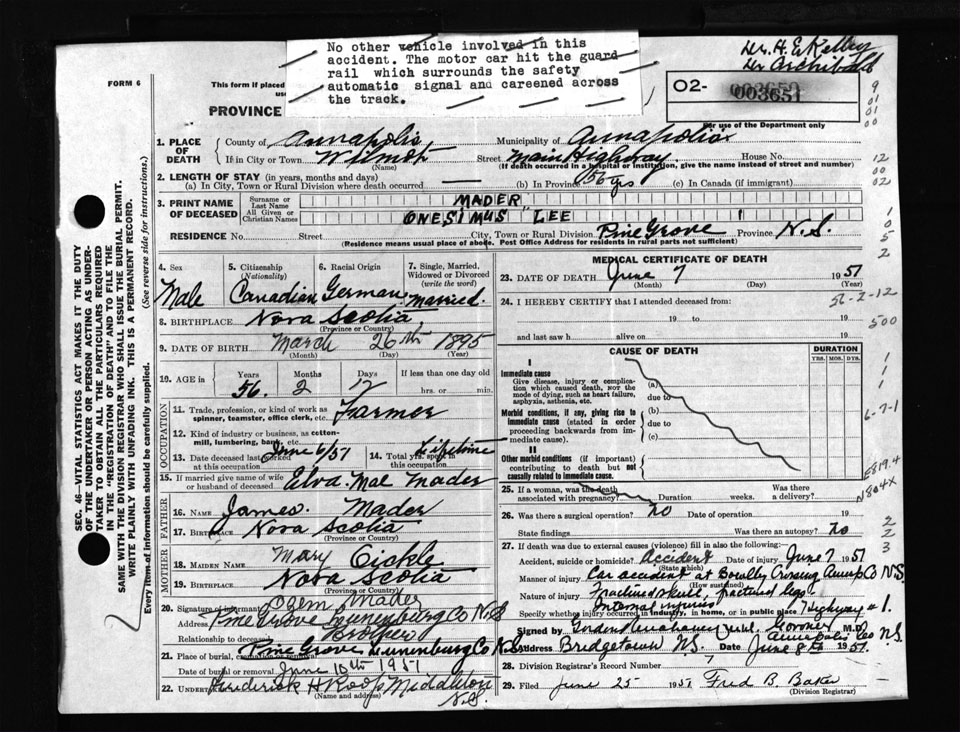 No other vehicle involved in this
accident. The motor car hit the guard
rail which surrounds the safety
automatic signal and careened across
the track.
Dr. H. E. Kelley
Dr Archibald
FORM 6
This form if placed
use
PROVINCE
O2- 003651
For use of the Department only
1. PLACE OF DEATH
County of Annapolis Municipality of Annapolis
If in City or Town Wilmot Street Main Highway House No.
(Name) (If death occurred in a hospital or institution, give the name instead of street and number)
2. LENGTH OF STAY (in years, months and days)
(a) In City, Town or Rural Division where death occurred — (b) In Province 56 yrs (c) In Canada (if immigrant)
3. PRINT NAME OF DECEASED
Surname or Last Name MADER
All Given or Christian Names ONESIMUS LEE
RESIDENCE No. Street City, Town or Rural Division Pine Grove Province N.S.
(Residence means usual place of abode. Post Office Address for residents in rural parts not sufficient)
4. Sex Male
5. Citizenship (Nationality) Canadian
6. Racial Origin German
7. Single, Married, Widowed or Divorced (write the word) Married.
8. BIRTHPLACE Nova Scotia
(Province or Country)
9. DATE OF BIRTH March 26th 1895
(Month) (Day) (Year)
10. AGE in Years 56. Months 2 Days 12 If less than one day old hrs. or min.
OCCUPATION
11. Trade, profession, or kind of work as spinner, teamster, office clerk, etc. Farmer
12. Kind of industry or business, as cotton-mill, lumbering, bank, etc.
13. Date deceased last worked at this occupation June 6/51
14. Total yrs. spent in this occupation Lifetime
15. If married give name of wife or husband of deceased Elva Mae Mader
FATHER
16. Name James Mader
17. Birthplace Nova Scotia
(Province or Country)
MOTHER
18. MAIDEN NAME Mary Eickle
19. BIRTHPLACE Nova Scotia
(Province or Country)
20. Signature of informant Ozem Mader
Address Pine Grove Lunenburg Co N.S
Relationship to deceased Brother
21. Place of burial, cremation or removal Pine Grove Lunenburg Co N.S.
Date of burial or removal June 10th 1951
22. UNDERTAKER Frederick H Roop Middleton
(Name and address) N.S.
MEDICAL CERTIFICATE OF DEATH
23. DATE OF DEATH June 7 1951
(Month) (Day) (Year)
24. I HEREBY CERTIFY that I attended deceased from:
19 to 19
and last saw h alive on 19
CAUSE OF DEATH
DURATION
YRS. MOS. DYS.
I
Immediate cause
Give disease, injury or complication which caused death, not the mode of dying, such as heart failure, asphyxia, asthenia, etc.
(a)
due to
Morbid conditions, if any, giving rise to immediate cause (stated in order proceeding backwards from immediate cause).
(b)
due to
(c)
II
Other morbid conditions (if important) contributing to death but not causally related to immediate cause.
25. If a woman, was the death associated with pregnancy? Duration weeks. Was there a delivery?
26. Was there a surgical operation? no Date of operation
State findings Was there an autopsy? no
27. If death was due to external causes (violence) fill in also the following:
Accident, suicide or homicide? Accident Date of injury June 7 1951
(State which)
Manner of injury Car accident at Crossing Annap Co N.S.
(How sustained)
Nature of injury Fractured skull, fractured legs
Internal injuries
Specify whether injury occurred in industry, in home, or in public place Highway #1.
Signed by Coroner M.D.
Annapolis Co N.S.
Address Bridgetown N.S. Date June 8th 1951.
28. Division Registrar's Record Number 7
29. Filed June 25 1951 Fred B. Baker
(Division Registrar)
SEC. 46—VITAL STATISTICS ACT MAKES IT THE DUTY
OF THE UNDERTAKER OR PERSON ACTING AS UNDER-
TAKER TO OBTAIN ALL THE PARTICULARS REQUIRED
IN THE "REGISTRATION OF DEATH" AND TO FILE THE
SAME WITH THE DIVISION REGISTRAR WHO SHALL ISSUE THE BURIAL PERMIT.
WRITE PLAINLY WITH UNFADING INK. THIS IS A PERMANENT RECORD.
Every item of information should be carefully supplied. (See reverse side for instructions.)
9
01
01
00
12
00
02
1
0
5
2
56-2-12
500
1
1
1
6-7-1
E819.4
N804X
2
2
3